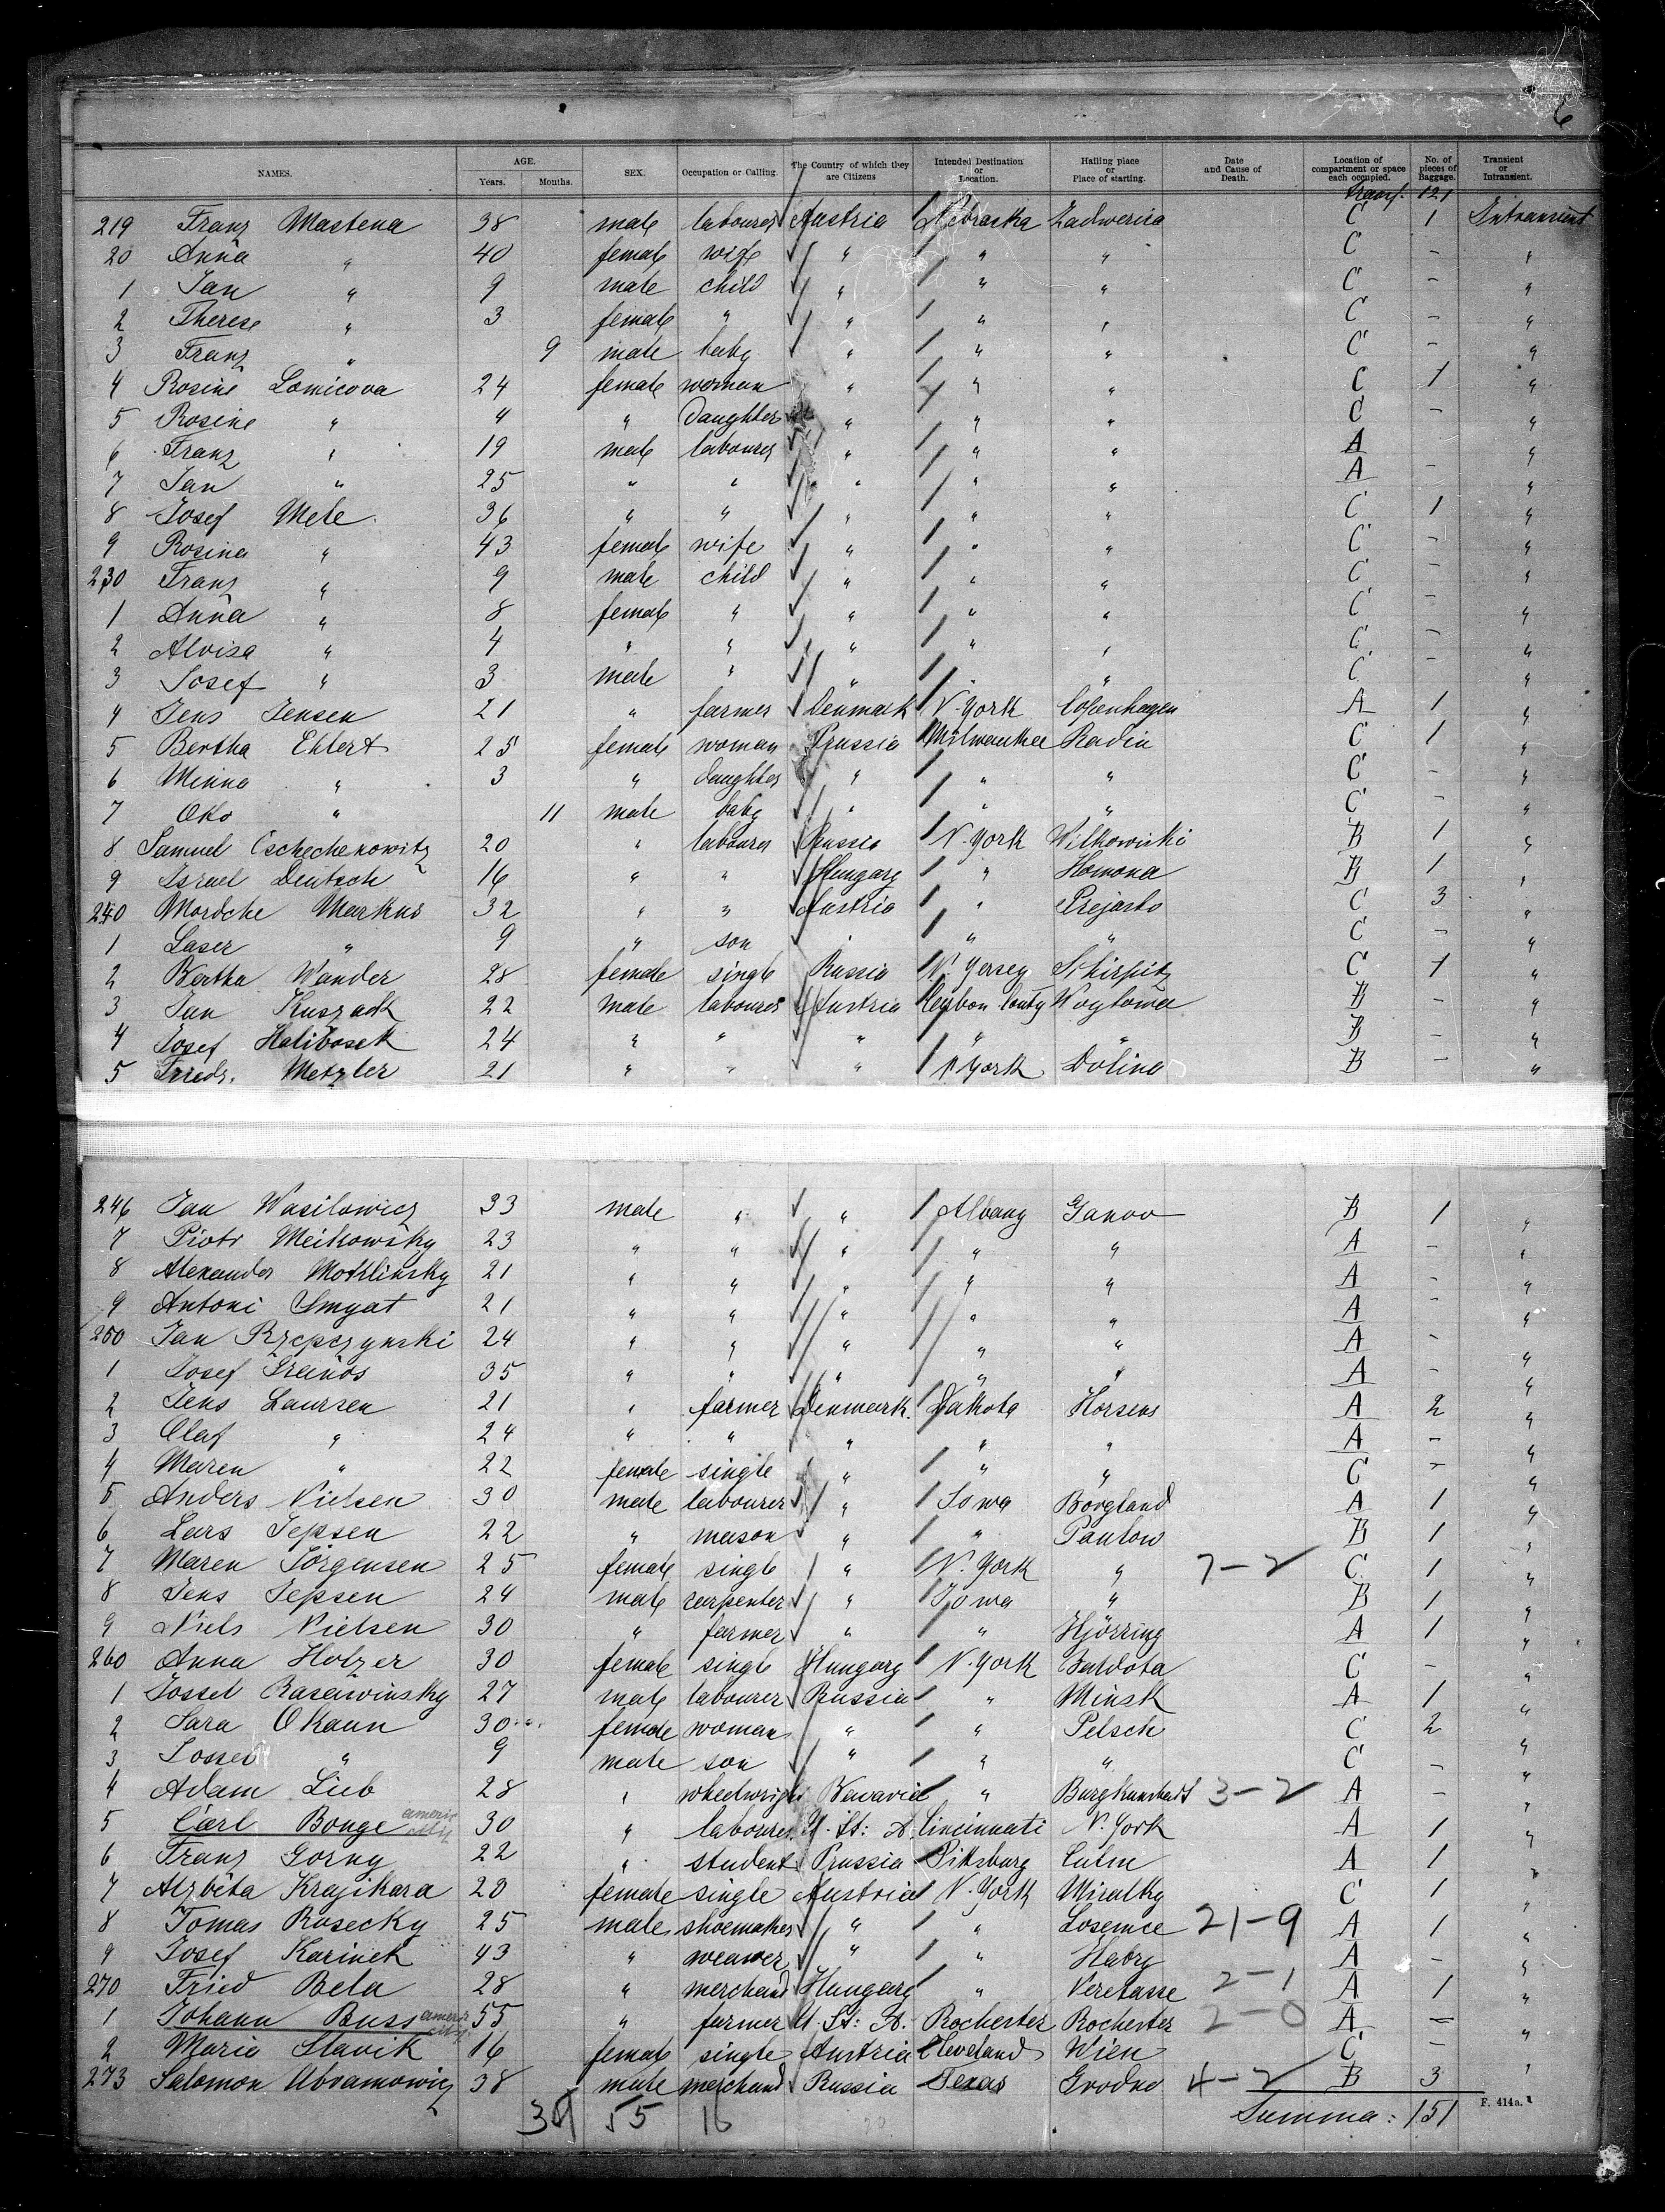 6
NAMES. AGE. Years. Months. SEX. Occupation or Calling. The Country of which they are Citizens Intended Destination or Location. Hailing place or Place of starting. Date and Cause of Death. Location of compartment or space each occupied. No. of pieces of Baggage. Transient or Intransient.
transf. 121
219 Franz Mastena 38 male labourer Austria Nebraska Zadwerica C 1 Intransient
20 Anna " 40 female wife " " " C - "
1 Jan " 9 male child " " " C - "
2 Therese " 3 female " " " " C - "
3 Franz " 9 male baby " " " C - "
4 Rosine Lomicova 24 female woman " " " C 1 "
5 Rosine " 4 " daughter " " " C - "
6 Franz " 19 male labourer " " " A "
7 Jan " 25 " " " " " A - "
8 Josef Mele 36 " " " " " C 1 "
9 Rosina " 43 female wife " " " C - "
230 Franz " 9 male child " " " C - "
1 Anna " 8 female " " " " C - "
2 Alvisa " 4 " " " " " C - "
3 Josef " 3 male " " " " C - "
4 Jens Jensen 21 " farmer Denmark N. York Copenhagen A 1 "
5 Bertha Ehlert 25 female woman Prussia Milwaukee Radin C 1 "
6 Minna " 3 " daughter " " " C - "
7 Otto " 11 male baby " " " C - "
8 Samuel Cschechenowitz 20 " labourer Russia N. York Wilkowiski B 1 "
9 Israel Deutsch 16 " " Hungary " Homona B 1 "
240 Mordche Markus 32 " " Austria " C 3 "
1 Laser " 9 " son " " " C - "
2 Bertha Wander 28 female single Russia N. Yersey Schirpitz C 1 "
3 Jan Kuszack 22 male labourer Austria Woytowa B - "
4 Josef Halibosek 24 " " " " " B - "
5 Friedr. Metzler 21 " " " N York Dolina B - "
246 Jan Wasilowicz 33 male " " Albany Ganov B 1 "
7 Piotr Meikowsky 23 " " " " " A - "
8 Alexander Mothlinsky 21 " " " " " A - "
9 Antoni Smyat 21 " " " " " A - "
250 Jan Rzepczynski 24 " " " " " A - "
1 Josef 35 " " " " " A - "
2 Jens Laursen 21 " farmer Denmark Dakota Horsens A 2 "
3 Olaf " 24 " " " " " A - "
4 Maren " 22 female single " " " C - "
5 Anders Nielsen 30 male labourer " Iowa Borgland A 1 "
6 Lars Jepsen 22 " mason " " Pantow B 1 "
7 Maren Jörgensen 25 female single " N. York " 7-2 C 1 "
8 Jens Jepsen 24 male carpenter " Iowa " B 1 "
9 Niels Nielsen 30 " farmer " " Hjörring A 1 "
260 Anna Holzer 30 female single Hungary N. York Bardota C - "
1 Jossel Raseiwinsky 27 male labourer Russia " Minsk A 1 "
2 Sara Okaun 30 female woman " " Pelsch C 2 "
3 Jossel " 9 male son " " " C - "
4 Adam Lieb 28 " wheelwright Bavaria " Burgkunstadt 3-2 A - "
5 Carl Bonge americ city 30 " labourer U. St: A. Cincinnati N. York A 1 "
6 Franz Gorny 22 " student Prussia Pittsburg Culm A 1 "
7 Alzbeta Krajikara 20 female single Austria N. York Miralky C 1 "
8 Tomas Rosecky 25 male shoemaker " " Losemce 21-9 A 1 "
9 Josef Karinek 43 " weaver " " Habry A - "
270 Fried Bela 28 " merchand Hungary " Veretasse 2-1 A 1 "
1 Johann Buss americ city 55 " farmer U. St: A. Rochester Rochester 2-0 A - "
2 Maria Slavik 16 female single Austria Cleveland Wien C - "
273 Salomon Abramowicz 38 male merchand Russia Texas Grodno 4-2 B 3 "
55 16 Summa: 151 F. 414a.